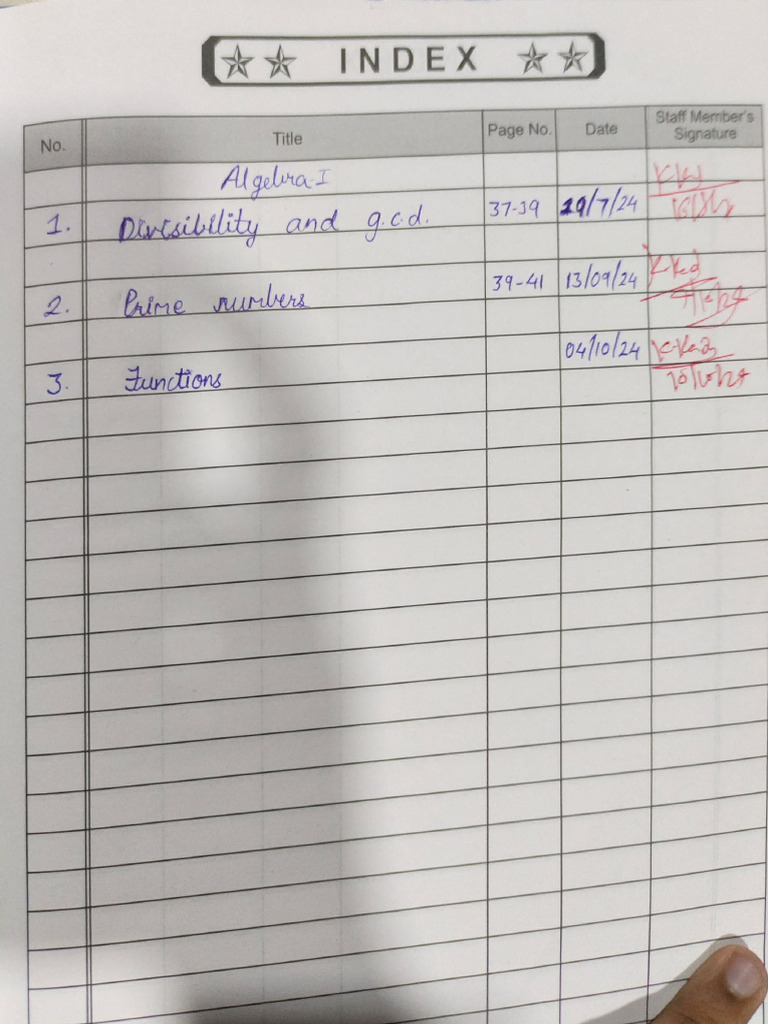 INDEX
No. Title Page No. Date Staff Member's Signature
Algebra-I
1. Divisibility and g.c.d. 37-39 29/7/24
2. Prime numbers 39-41 13/09/24
3. Functions 04/10/24
10/10/24